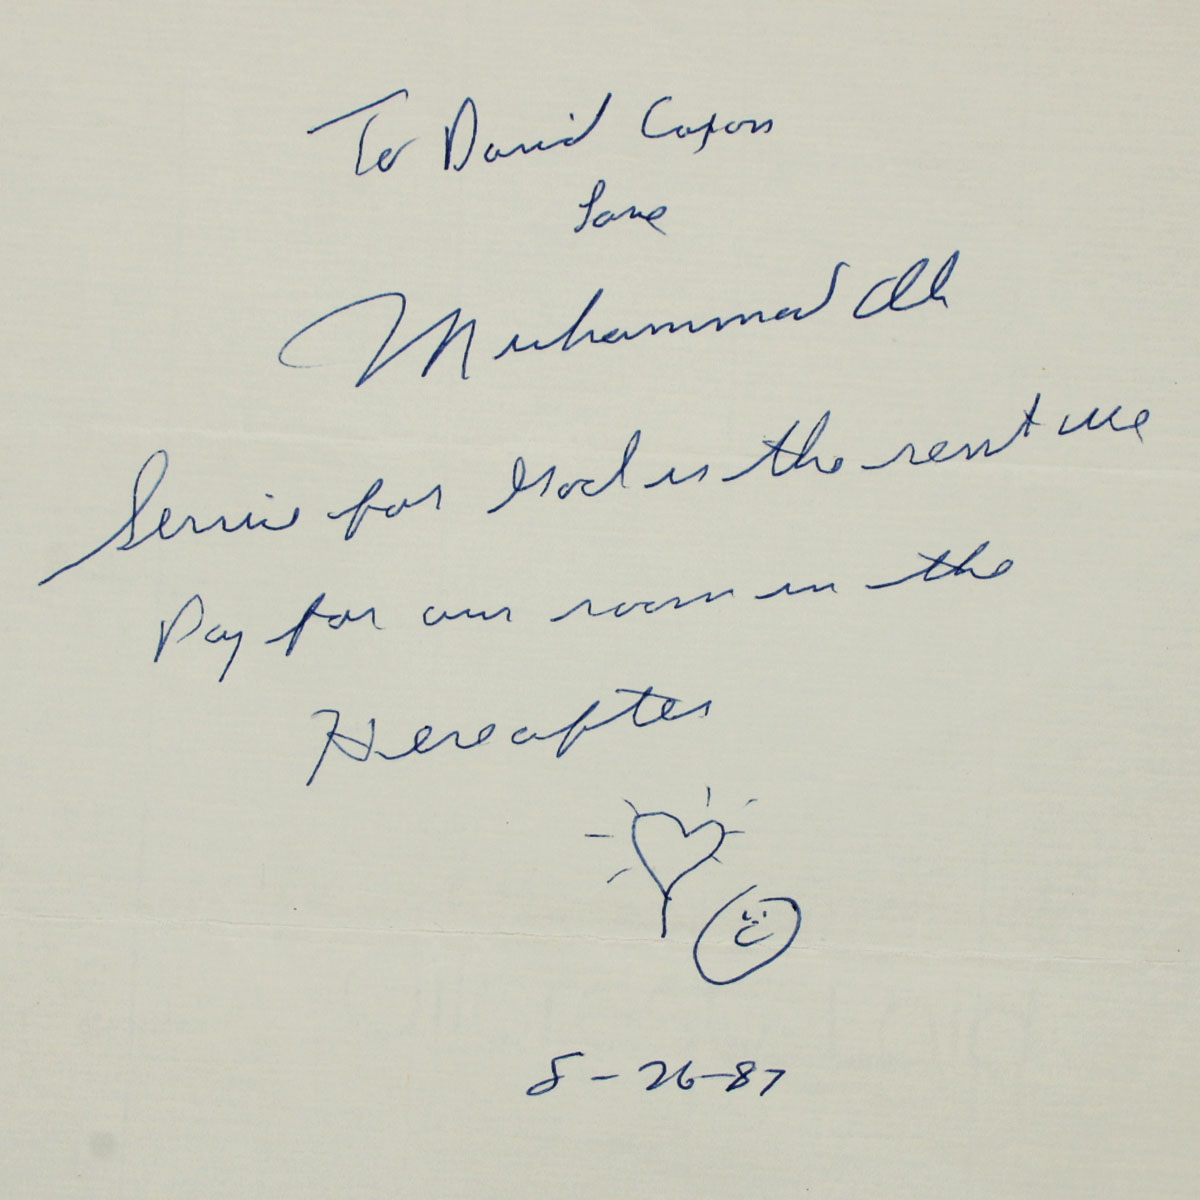 To David Capon
Love
Muhammad Ali
Service for God is the rent we
Pay for our room in the
Hereafter
8-26-87